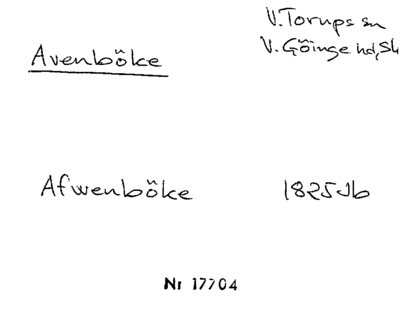 V. Torups sn
Avenböke
V. Göinge hd, Sk
Afwenböke 1825 Jb
Nr 17704